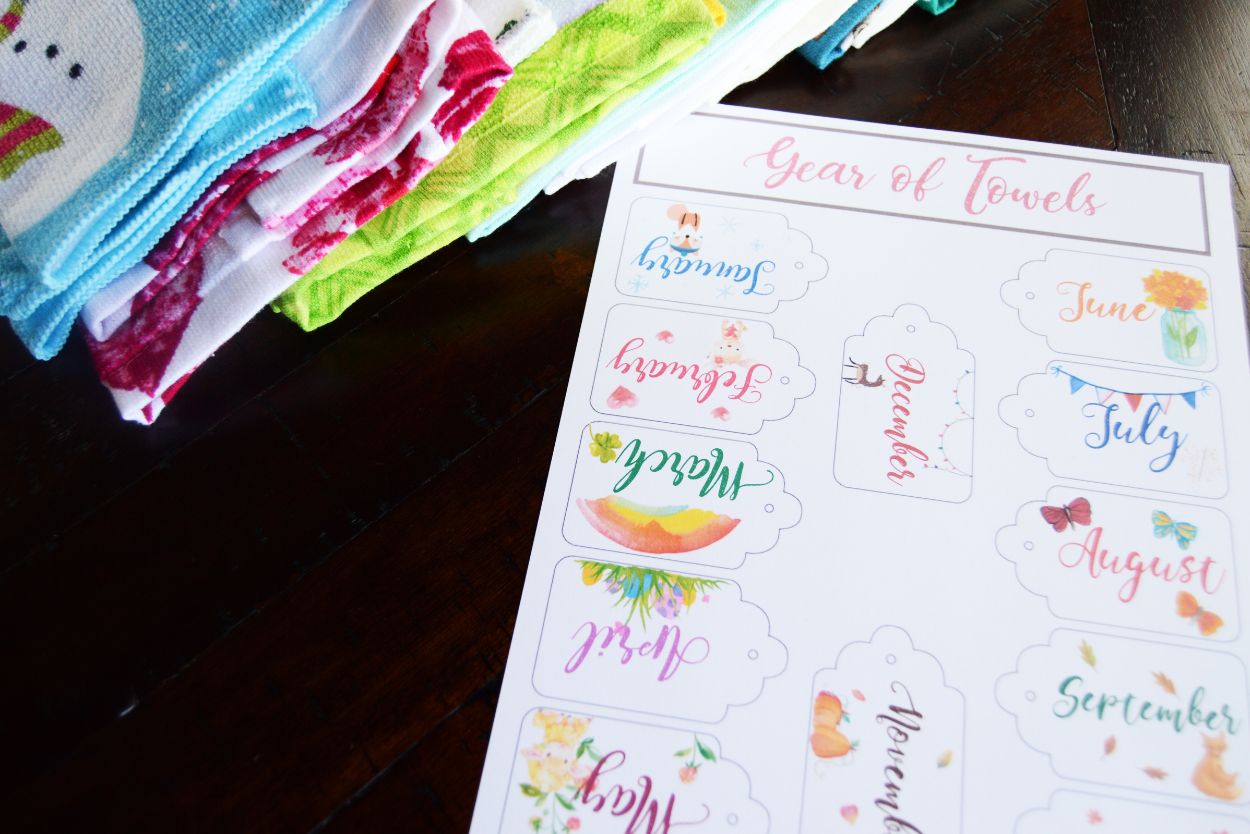 Gear of Towels
January
February
March
April
May
December
Novemb
June
July
August
September